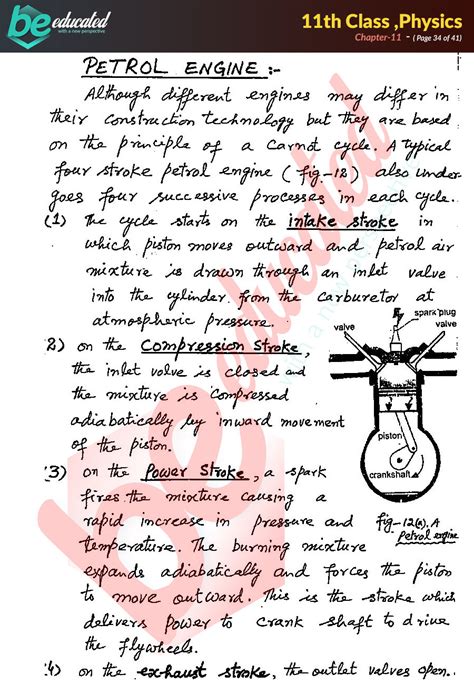 be educated
with a new perspective
11th Class ,Physics
Chapter-11 - ( Page 34 of 41)
PETROL ENGINE :-
Although different engines may differ in
their construction technology but they are based
on the principle of a Carnot cycle. A typical
four stroke petrol engine (fig-12) also under-
goes four successive processes in each cycle.
(1) The cycle starts on the intake stroke in
which piston moves outward and petrol air
mixture is drawn through an inlet valve
into the cylinder from the carburetor at
atmospheric pressure.
spark plug
valve
valve
2) on the Compression Stroke,
the inlet valve is closed and
the mixture is compressed
adiabatically by inward movement
of the piston.
piston
crankshaft
(3) on the Power Stroke, a spark
fires the mixture causing a
rapid increase in pressure and
fig-12(a). A
Petrol engine
temperature. The burning mixture
expands adiabatically and forces the piston
to move outward. This is the stroke which
delivers power to crank shaft to drive
the flywheels.
4) on the exhaust stroke, the outlet valves open..
be educated